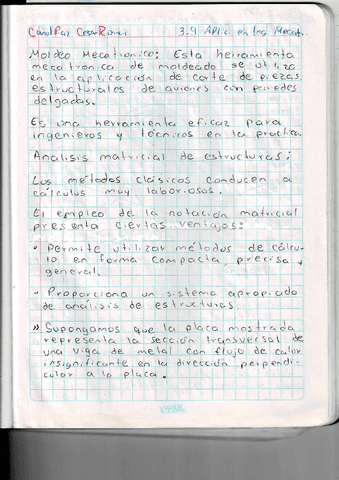 Carol Paz Cesar 3.9 Aplic en Ing Mecatr.
Moldeo Mecatronico: Esta herramienta
mecatronica de moldeado se utiliza
en la aplicación de corte de piezas
estructurales de aviones con paredes
delgadas.
Es una herramienta eficaz para
ingenieros y técnicos en la practica.
Analisis matricial de estructuras:
Los métodos clásicos conducen a
cálculos muy laboriosos.
El empleo de la notación matricial
presenta ciertas ventajas:
• Permite utilizar métodos de cálcu-
lo en forma compacta, precisa y
general.
• Proporciona un sistema apropiado
de análisis de estructuras.
» Supongamos que la placa mostrada
representa la sección transversal de
una viga de metal con flujo de calor
insignificante en la dirección perpendi-
cular a la placa.